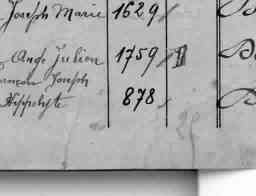 Joseph Marie 1629
Ange Julien 1759
François Joseph
Hippolyte 878